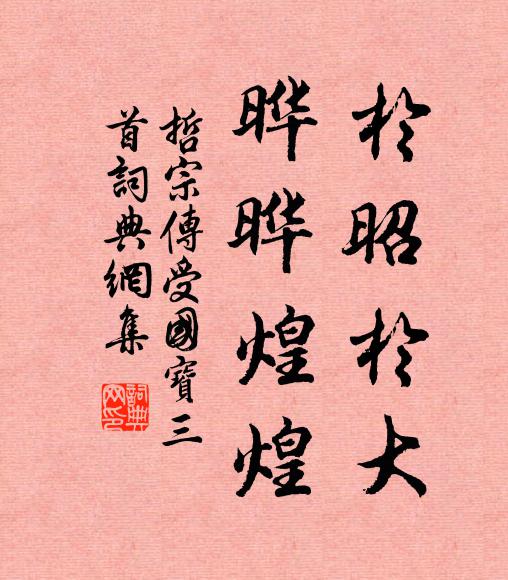 於昭於大
晔晔煌煌
哲宗傳受國寶三
首詞典網集
詞典
网印